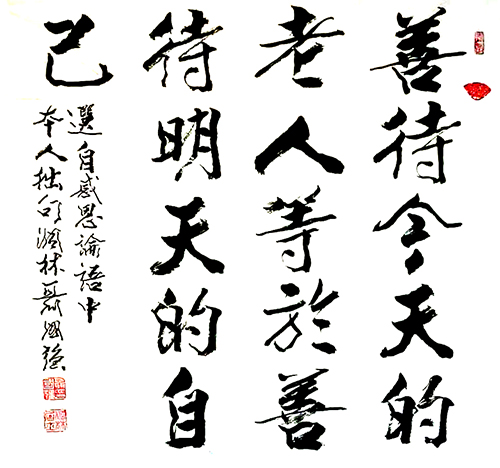 善待今天的
老人等於善
待明天的自
己
選自感恩論語中
本人拙句 澗林聶國強